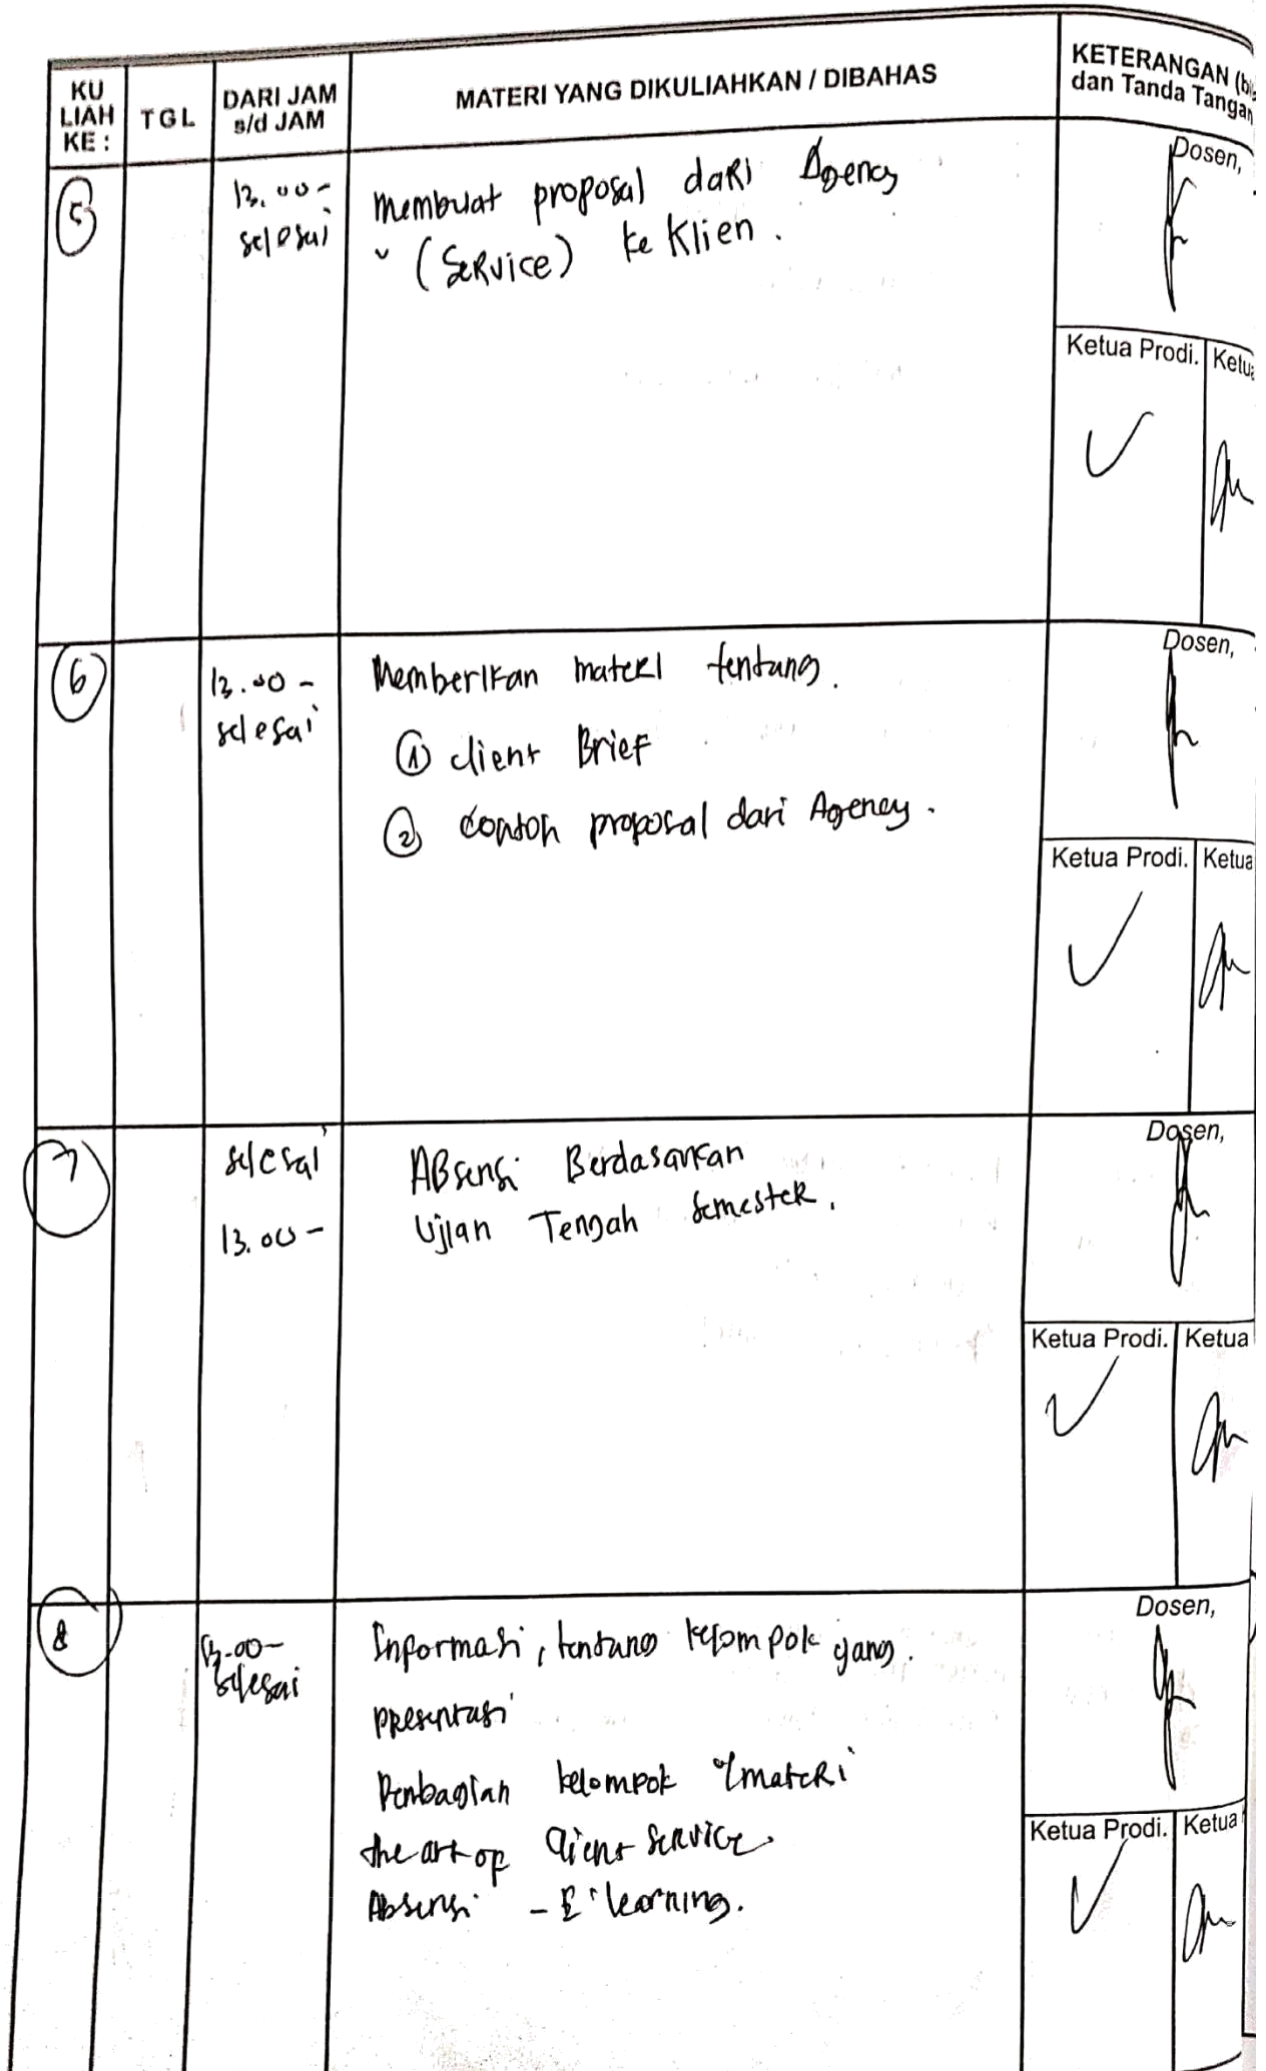 KU
LIAH
KE :
TGL
DARI JAM
s/d JAM
MATERI YANG DIKULIAHKAN / DIBAHAS
KETERANGAN (bi
dan Tanda Tangan
5
13.00 -
selesai
Membuat proposal dari Agency
(Service) ke Klien.
Dosen,
Ketua Prodi.
Ketua
6
13.00 -
selesai
Memberikan materi tentang.
1 client Brief
2 contoh proposal dari Agency.
Dosen,
Ketua Prodi.
Ketua
7
selesai
13.00 -
Absensi Berdasarkan
Ujian Tengah Semester.
Dosen,
Ketua Prodi.
Ketua
8
13.00 -
selesai
Informasi, tentang kelompok yang.
presentasi
Penbagian kelompok materi
the art of client service.
Absensi - E-learning.
Dosen,
Ketua Prodi.
Ketua